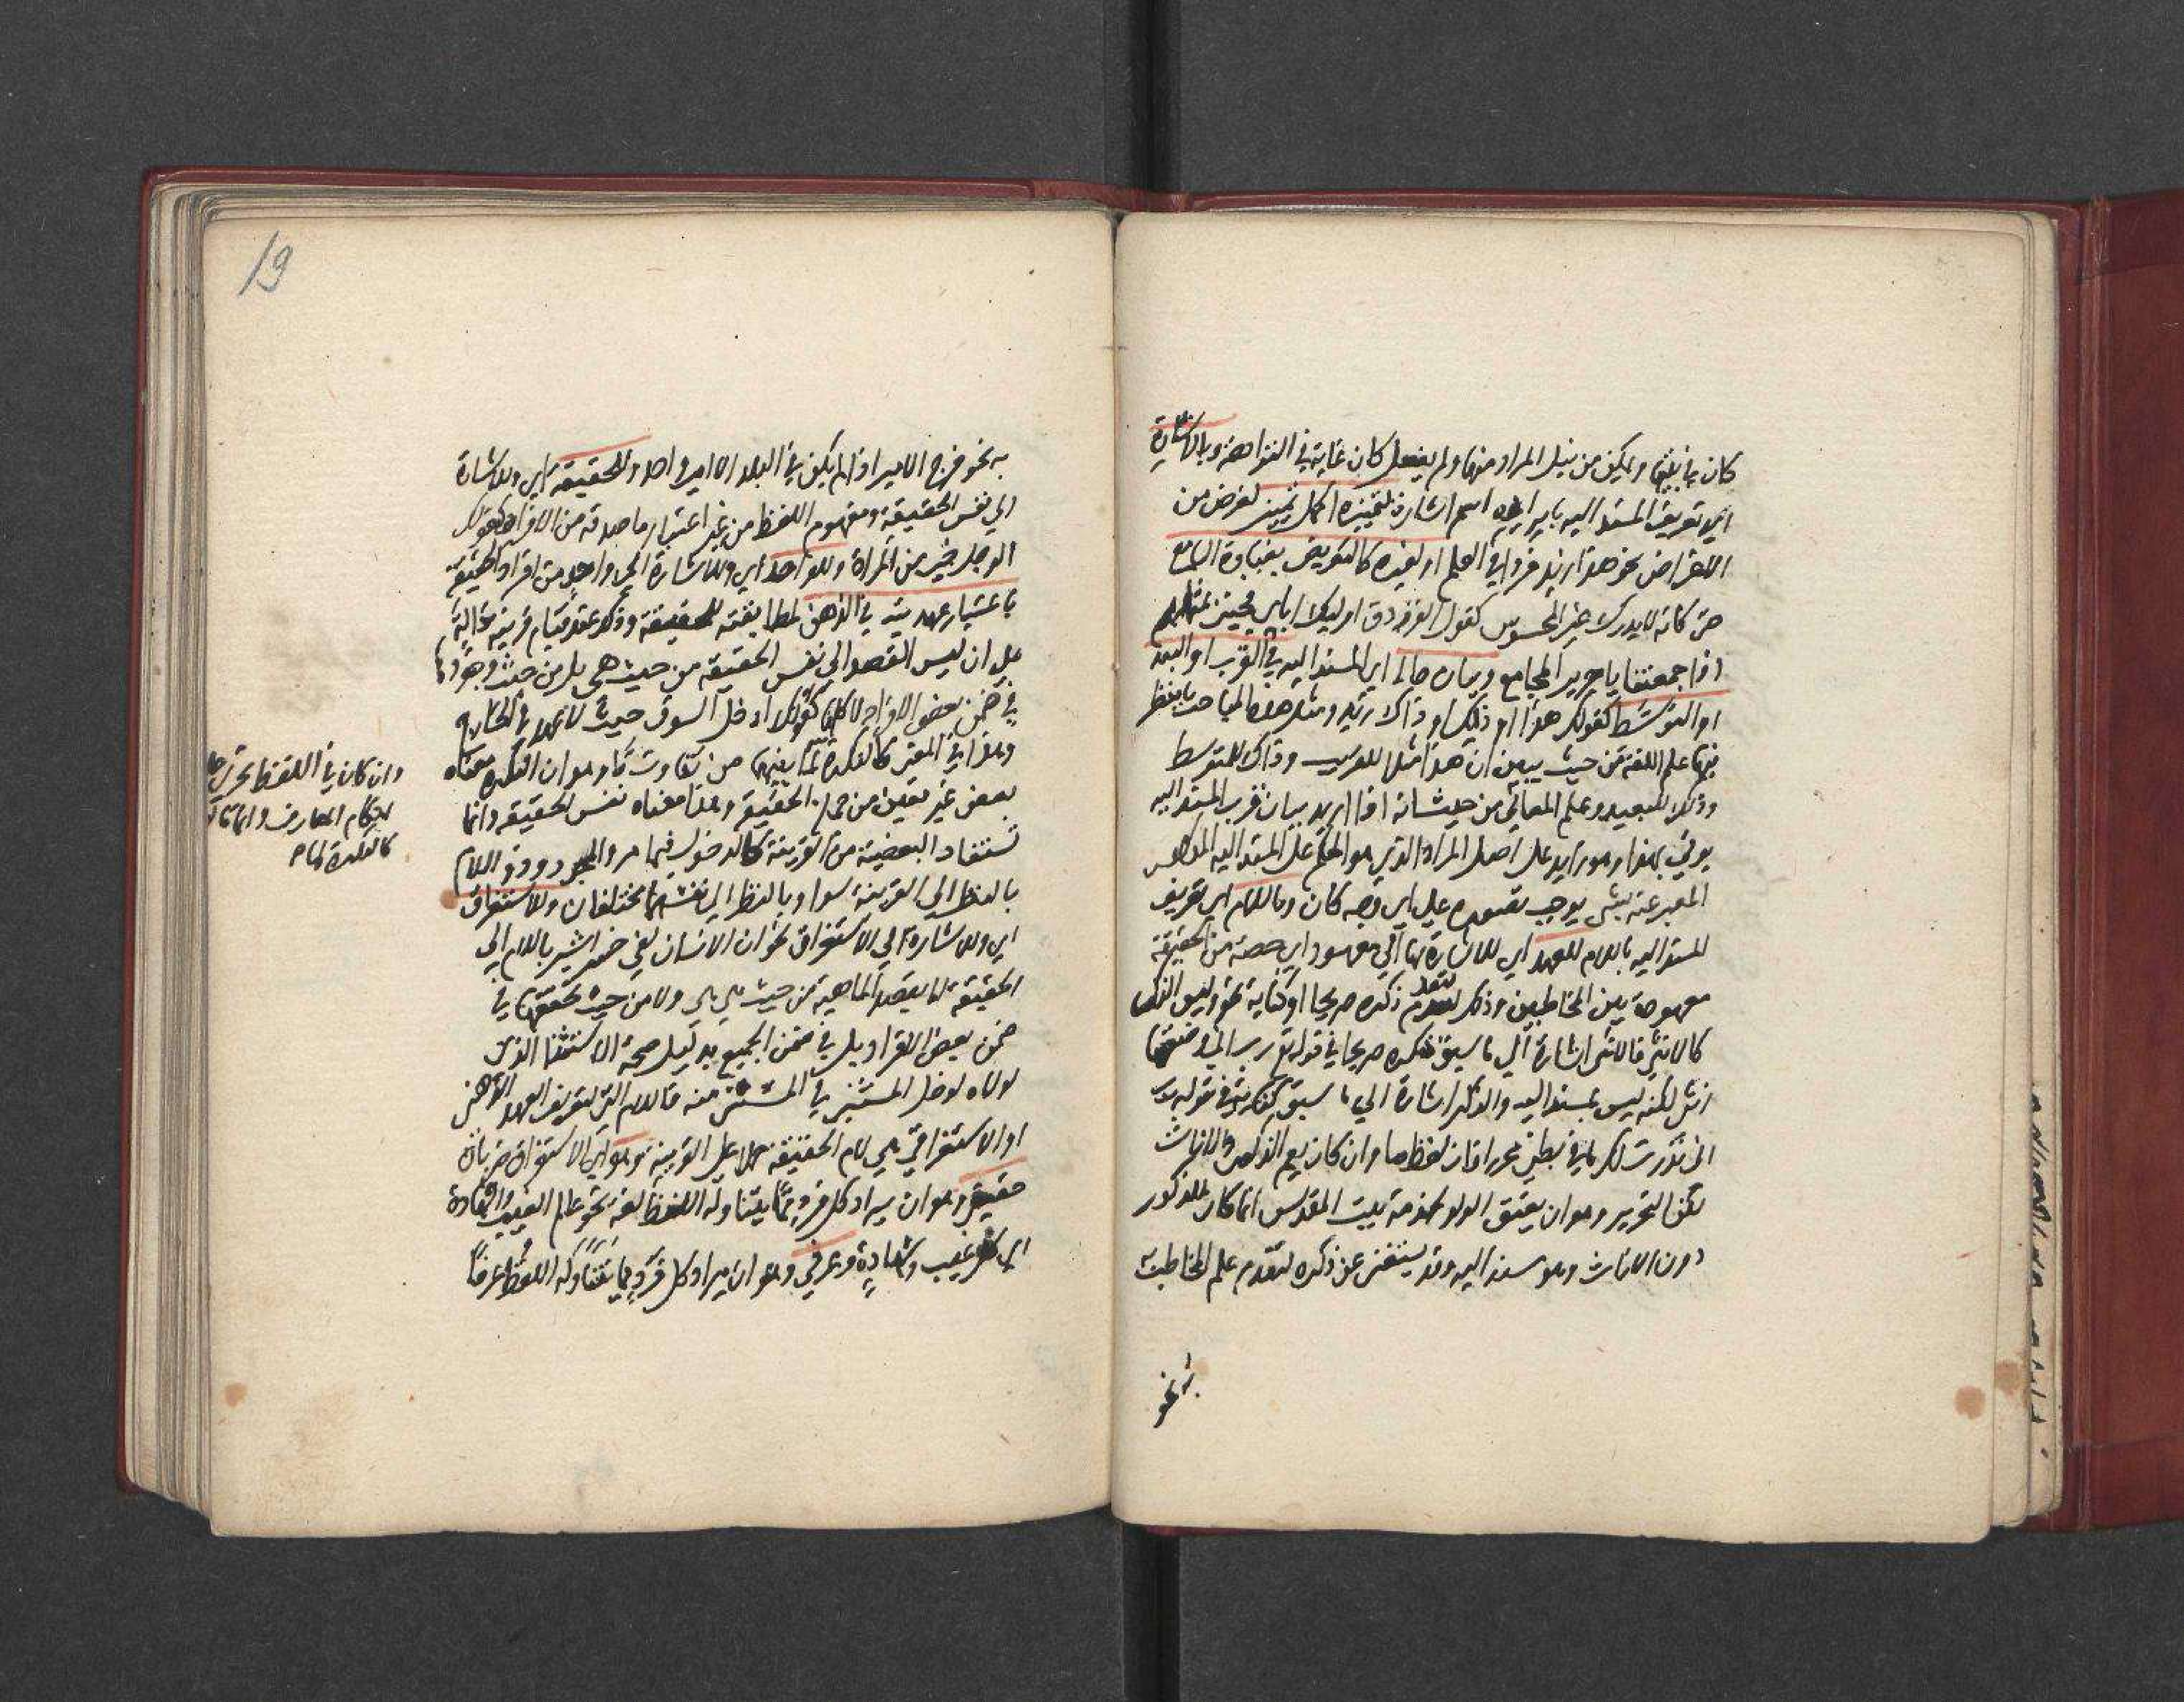 كان يانبيها ولم يكن من نيل المراد منها ولم يفعل كان غاية في النزاهة وبالاشارة
اي تعريف المسند اليه بايراده اسم اشارة لتميزه اكمل تمييز لغرض من
الاغراض نحو هذا زيد فردا في العلم او لغيره كالتعريض بغباوة السامع
حتى كانه لا يدرك غير المحسوس كقول الفرزدق اوليك ابائي فجيني بمثلهم
اذا جمعتنا يا جرير المجامع وبيان حاله اي المسند اليه في القرب او البعد
او التوسط كقولك هذا او ذلك او ذاك زيد ومثل هذه المباحث ينظر
فيها علم اللغة من حيث يبين ان هذا مثلا للقريب وذاك للمتوسط
وذلك للبعيد وعلم المعاني من حيث انه اذا اريد بيان قرب المسند اليه
يوتى بهذا وهو زايد على اصل المراد الذي هو الحكم على المسند اليه المذكور
المعبر عنه بشي يوجب تصوره على اي وجه كان وباللام اي تعريف
المسند اليه باللام للعهد اي للاشارة بها الى معهود اي حصة من الحقيقة
معهودة بين المخاطبين وذلك لتقدم ذكره صريحا او كناية نحو وليس الذكر
كالانثى فالانثى اشارة الى ما سبق ذكره صريحا في قوله تع رب اني وضعتها
انثى لكنه ليس بمسند اليه والذكر اشارة الى ما سبق ذكره في قوله رب
اني نذرت لك ما في بطني محررا فان لفظ ما وان كان يعم الذكور والاناث
لكن التحرير وهو ان يعتق الولد لخدمة بيت المقدس انما كان للذكور
دون الاناث وهو مسند اليه وقد يستغنى عن ذكره لتقدم علم المخاطب
به نحو
19
به نحو خرج الامير اذا لم يكن في البلد الا امير واحد وللحقيقة اي وللاشارة
الى نفس الحقيقة ومفهوم اللفظ من غير اعتبار ما صدقه من الافراد كقولك
الرجل خير من المراة وللواحد اي وللاشارة الى واحد من افراد الحقيقة
باعتبار عهديته في الذهن لمطابقته للحقيقة وذلك عند قيام قرينة دالة
على ان ليس القصد الى نفس الحقيقة من حيث هي بل من حيث وجودها
في ضمن بعض الافراد لا كلها كقولك ادخل السوق حيث لا عهد في الخارج
وهذا في المعنى كالنكرة لما بينهما من تفاوت ما وهو ان النكرة معناه
بعض غير معين من جملة الحقيقة وهذا معناه نفس الحقيقة وانما
تستفاد البعضية من القرينة كالدخول فيما مر والمجرد وذو اللام
بالنظر الى القرينة سوا وبالنظر الى انفسهما مختلفان وللاستغراق
اي وللاشارة الى الاستغراق نحو ان الانسان لفي خسر اشير باللام الى
الحقيقة لا يقصد الماهية من حيث هي هي ولا من حيث تحققها في
ضمن بعض الافراد بل في ضمن الجميع بدليل صحة الاستثنا الذي
لولاه لدخل المستثنى في المستثنى منه فاللام التي لتعريف العهد الذهني
او الاستغراق هي لام الحقيقة حملا على القرينة وهو اي الاستغراق ضربان
حقيقي وهو ان يراد كل فرد مما يتناوله اللفظ لغة نحو عالم الغيب والشهادة
اي كل غيب وشهادة وعرفي وهو ان يراد كل فرد مما يتناوله اللفظ عرفا
وان كان في اللفظ يجرى عليه
احكام المعارف وانما
كالنكرة